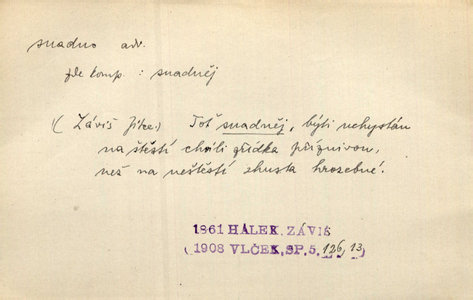 snadno adv.
zde komp. : snadněj
(Záviš Jitce) Toť snadněj, býti nchystán
na štěstí chvíli zřídka příznivou,
než na neštěstí zhusta hrozebné.
1861 HÁLEK. ZÁVIŠ
( 1908 VLČEK, SP. 5, 126, 13 )